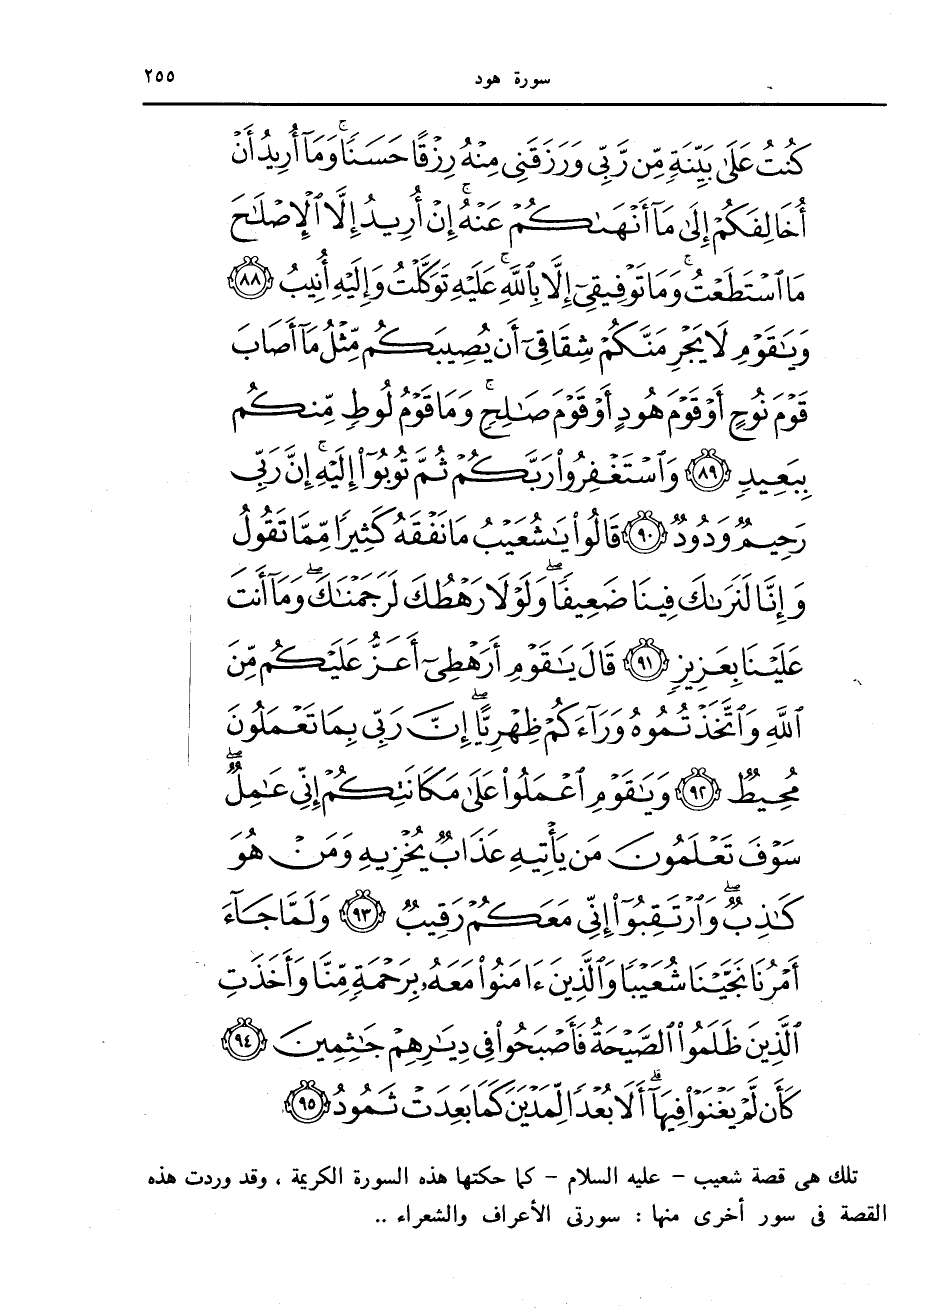 سورة هود ٢٥٥
كُنتُ عَلَىٰ بَيِّنَةٍ مِّن رَّبِّى وَرَزَقَنِى مِنْهُ رِزْقًا حَسَنًا ۚ وَمَآ أُرِيدُ أَنْ
أُخَالِفَكُمْ إِلَىٰ مَآ أَنْهَىٰكُمْ عَنْهُ ۚ إِنْ أُرِيدُ إِلَّا ٱلْإِصْلَٰحَ
مَا ٱسْتَطَعْتُ ۚ وَمَا تَوْفِيقِىٓ إِلَّا بِٱللَّهِ ۚ عَلَيْهِ تَوَكَّلْتُ وَإِلَيْهِ أُنِيبُ ٨٨
وَيَٰقَوْمِ لَا يَجْرِمَنَّكُمْ شِقَاقِىٓ أَن يُصِيبَكُم مِّثْلُ مَآ أَصَابَ
قَوْمَ نُوحٍ أَوْ قَوْمَ هُودٍ أَوْ قَوْمَ صَٰلِحٍ ۚ وَمَا قَوْمُ لُوطٍ مِّنكُم
بِبَعِيدٍ ٨٩ وَٱسْتَغْفِرُوا۟ رَبَّكُمْ ثُمَّ تُوبُوٓا۟ إِلَيْهِ ۚ إِنَّ رَبِّى
رَحِيمٌ وَدُودٌ ٩٠ قَالُوا۟ يَٰشُعَيْبُ مَا نَفْقَهُ كَثِيرًا مِّمَّا تَقُولُ
وَإِنَّا لَنَرَىٰكَ فِينَا ضَعِيفًا ۖ وَلَوْلَا رَهْطُكَ لَرَجَمْنَٰكَ ۖ وَمَآ أَنتَ
عَلَيْنَا بِعَزِيزٍ ٩١ قَالَ يَٰقَوْمِ أَرَهْطِىٓ أَعَزُّ عَلَيْكُم مِّنَ
ٱللَّهِ وَٱتَّخَذْتُمُوهُ وَرَآءَكُمْ ظِهْرِيًّا ۖ إِنَّ رَبِّى بِمَا تَعْمَلُونَ
مُحِيطٌ ٩٢ وَيَٰقَوْمِ ٱعْمَلُوا۟ عَلَىٰ مَكَانَتِكُمْ إِنِّى عَٰمِلٌ ۖ
سَوْفَ تَعْلَمُونَ مَن يَأْتِيهِ عَذَابٌ يُخْزِيهِ وَمَنْ هُوَ
كَٰذِبٌ ۖ وَٱرْتَقِبُوٓا۟ إِنِّى مَعَكُمْ رَقِيبٌ ٩٣ وَلَمَّا جَآءَ
أَمْرُنَا نَجَّيْنَا شُعَيْبًا وَٱلَّذِينَ ءَامَنُوا۟ مَعَهُۥ بِرَحْمَةٍ مِّنَّا وَأَخَذَتِ
ٱلَّذِينَ ظَلَمُوا۟ ٱلصَّيْحَةُ فَأَصْبَحُوا۟ فِى دِيَٰرِهِمْ جَٰثِمِينَ ٩٤
كَأَن لَّمْ يَغْنَوْا۟ فِيهَآ ۗ أَلَا بُعْدًا لِّمَدْيَنَ كَمَا بَعِدَتْ ثَمُودُ ٩٥
تلك هى قصة شعيب - عليه السلام - كما حكتها هذه السورة الكريمة ، وقد وردت هذه
القصة فى سور أخرى منها : سورتى الأعراف والشعراء ..